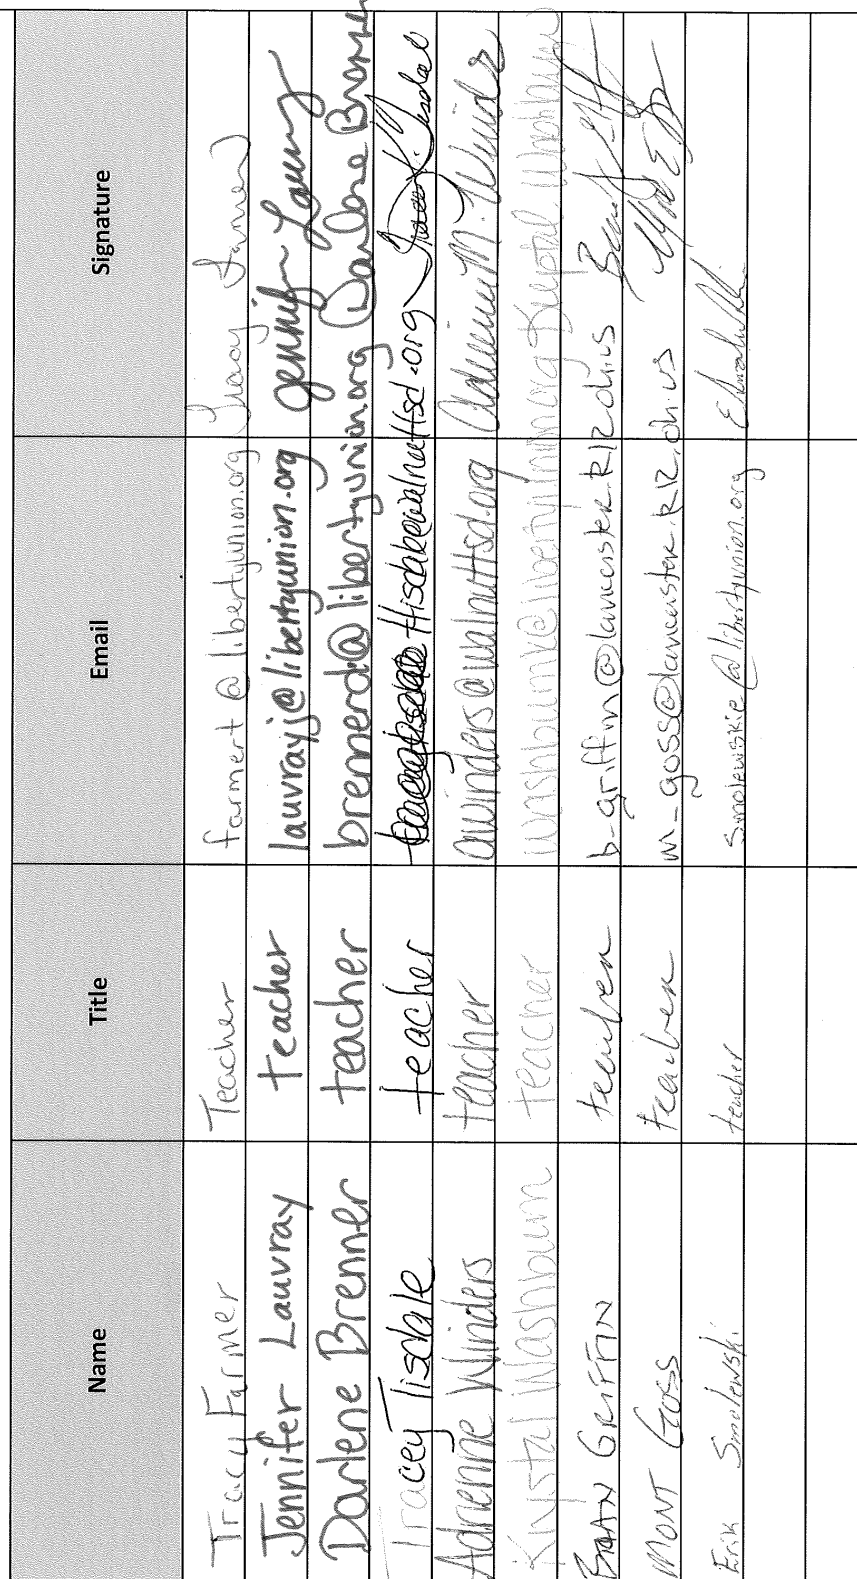 Name Title Email Signature
Tracy Farmer Teacher farmert@libertyunion.org Tracy Farmer
Jennifer Lauvray teacher lauvrayj@libertyunion.org Jennifer Lauvray
Darlene Brenner teacher brennerd@libertyunion.org Darlene Brenner
Tracey Tisdale teacher ttisdale@walnuttsd.org
Adrienne Winders teacher awinders@walnuttsd.org Adrienne M. Winders
Krystal Washburn teacher washburnk@libertyunion.org Krystal Washburn
Brian Griffin teacher b_griffin@lancaster.k12.oh.us
Mont Goss teacher m_goss@lancaster.k12.oh.us
Erik Smolewski teacher smolewskie@libertyunion.org